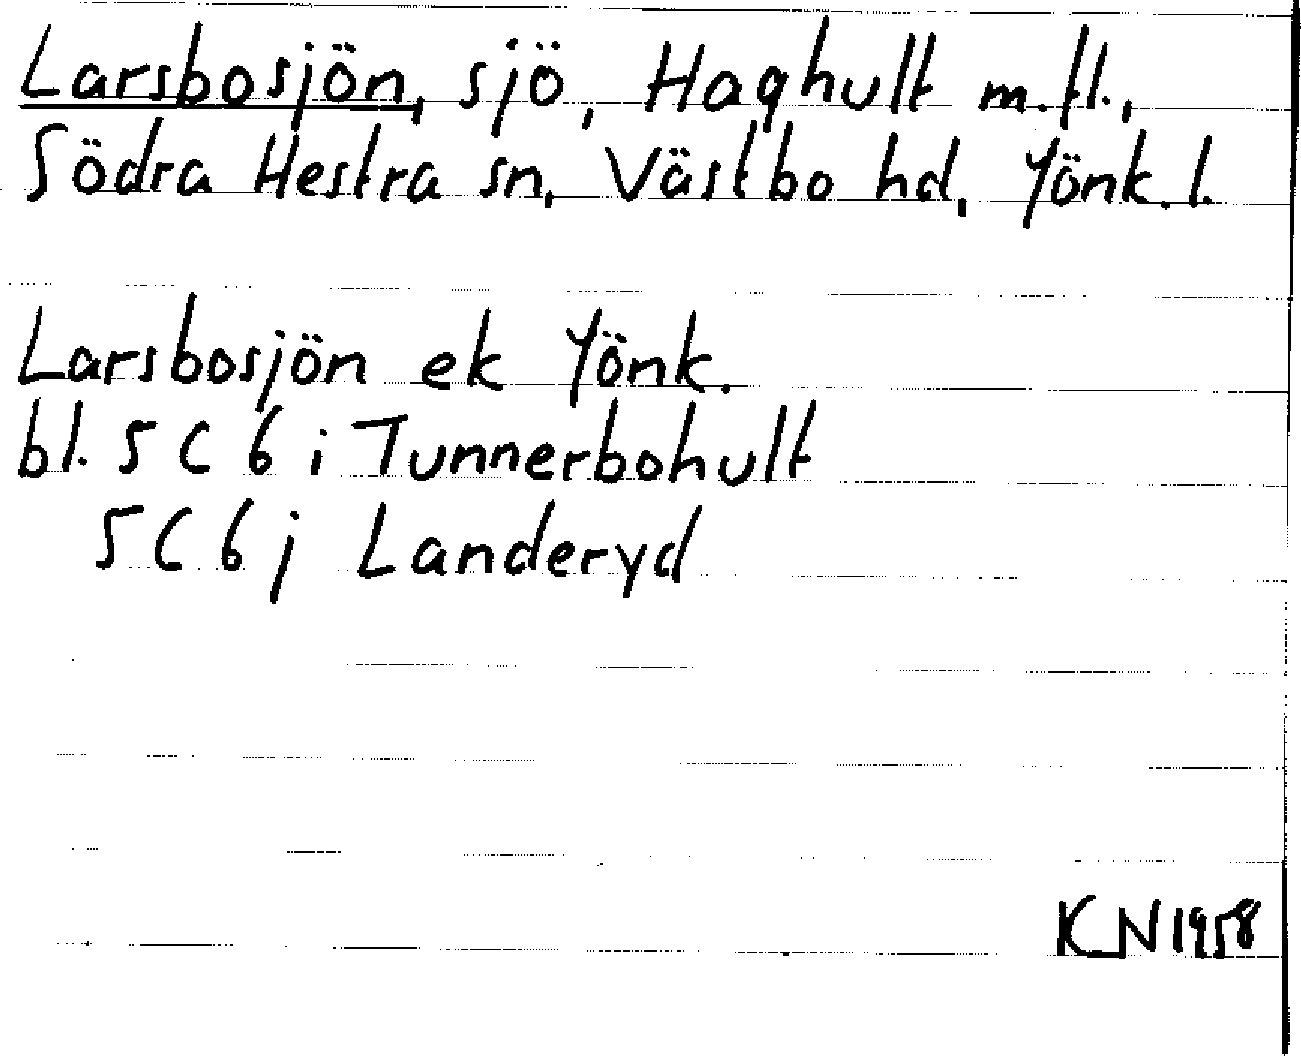 Larsbosjön, sjö, Haghult m.fl.,
Södra Hestra sn, Västbo hd, Jönk.l.
Larsbosjön ek Jönk.
bl. 5C 6 i Tunnerbohult
5C 6 j Landeryd
KN 1958